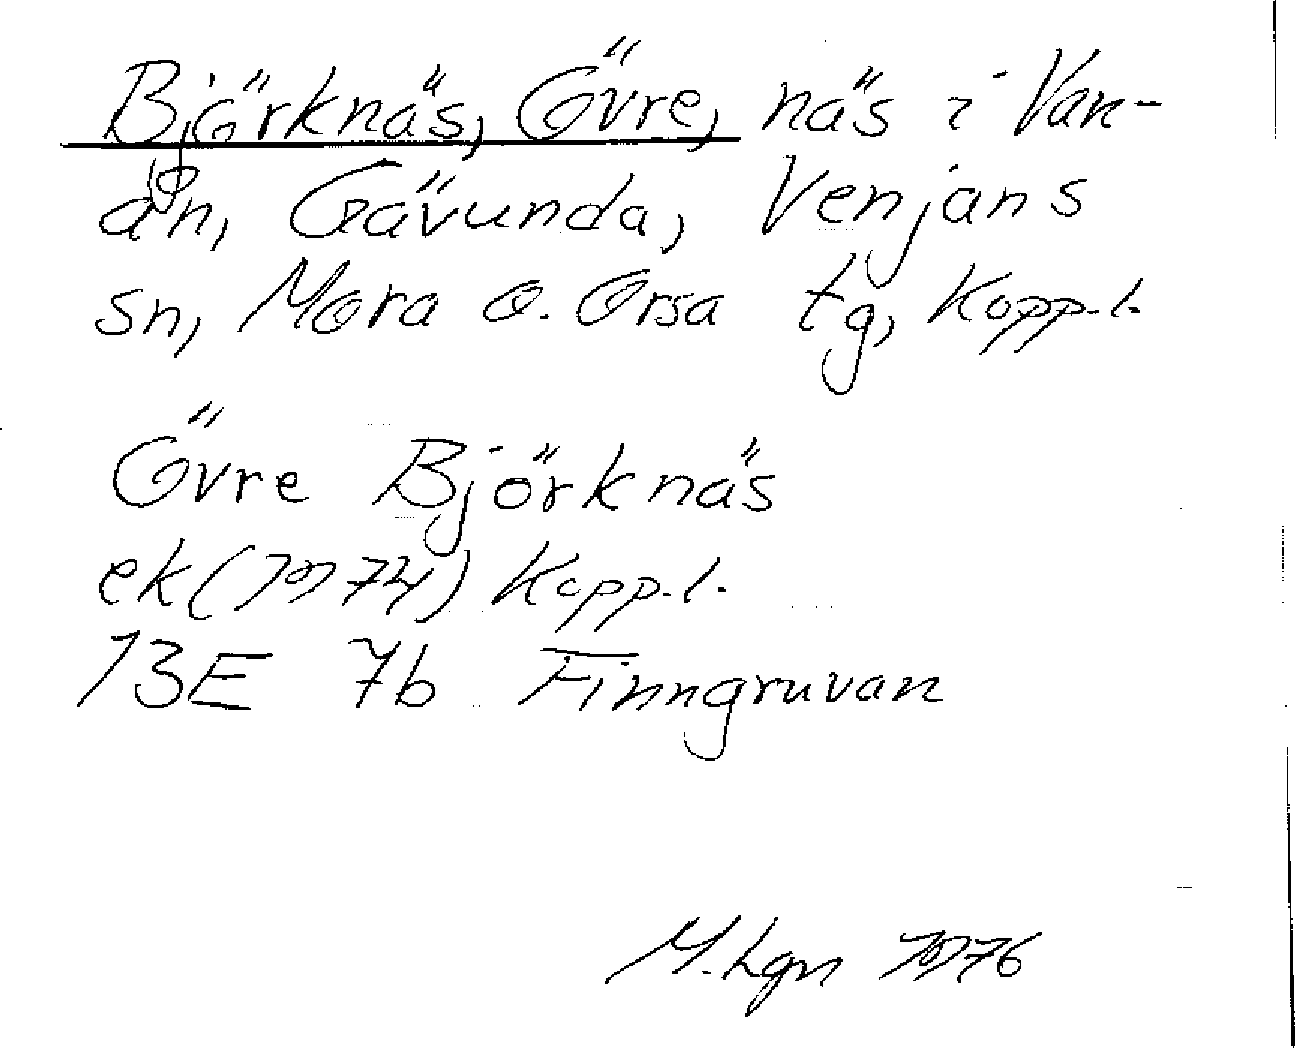 Björknäs, Övre, näs i Van-
ån, Gävunda, Venjans
sn, Mora o. Orsa tg, Kopp. l.
Övre Björknäs
ek (1974) Kopp. l.
13E 7b Finngruvan
M. Lgn 1976